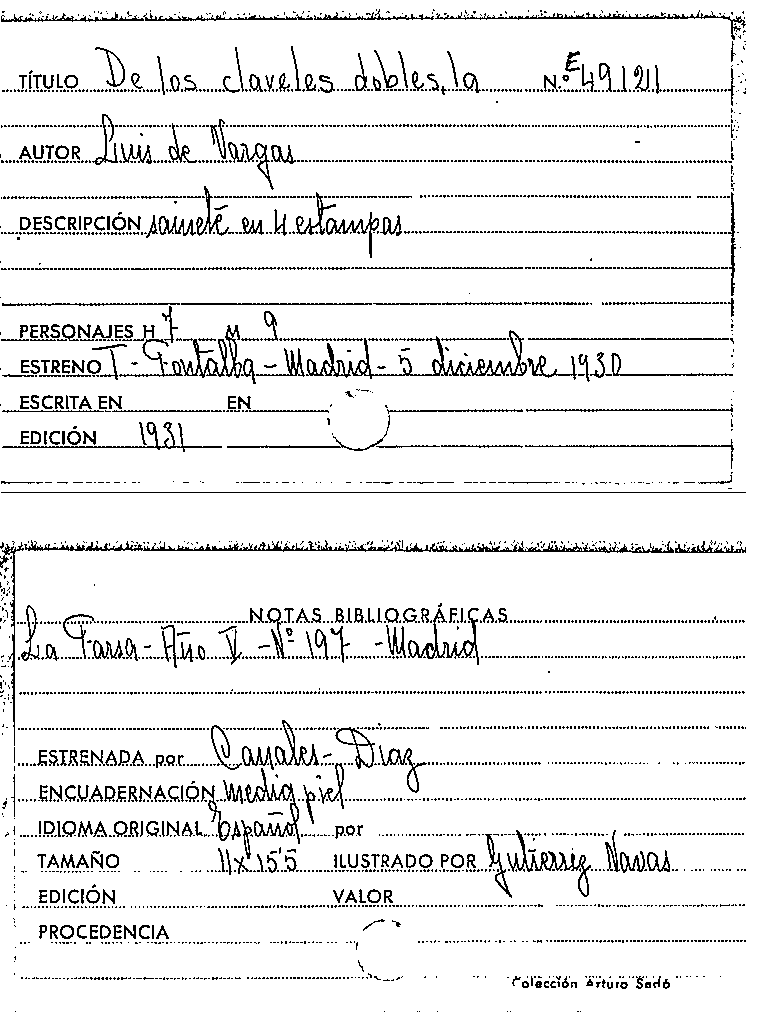 TÍTULO De los claveles dobles, la N.º E 491211
AUTOR Luis de Vargas
DESCRIPCIÓN sainete en 4 estampas
PERSONAJES H 7 M 9
ESTRENO T - Fontalba - Madrid - 5 diciembre 1930
ESCRITA EN EN
EDICIÓN 1931
NOTAS BIBLIOGRÁFICAS
La Farsa - Año V - Nº 197 - Madrid
ESTRENADA por Canales - Diaz
ENCUADERNACIÓN media piel
IDIOMA ORIGINAL Español por
TAMAÑO 11x15'5 ILUSTRADO POR Gutierrez Navas
EDICIÓN VALOR
PROCEDENCIA
Colección Arturo Sedó